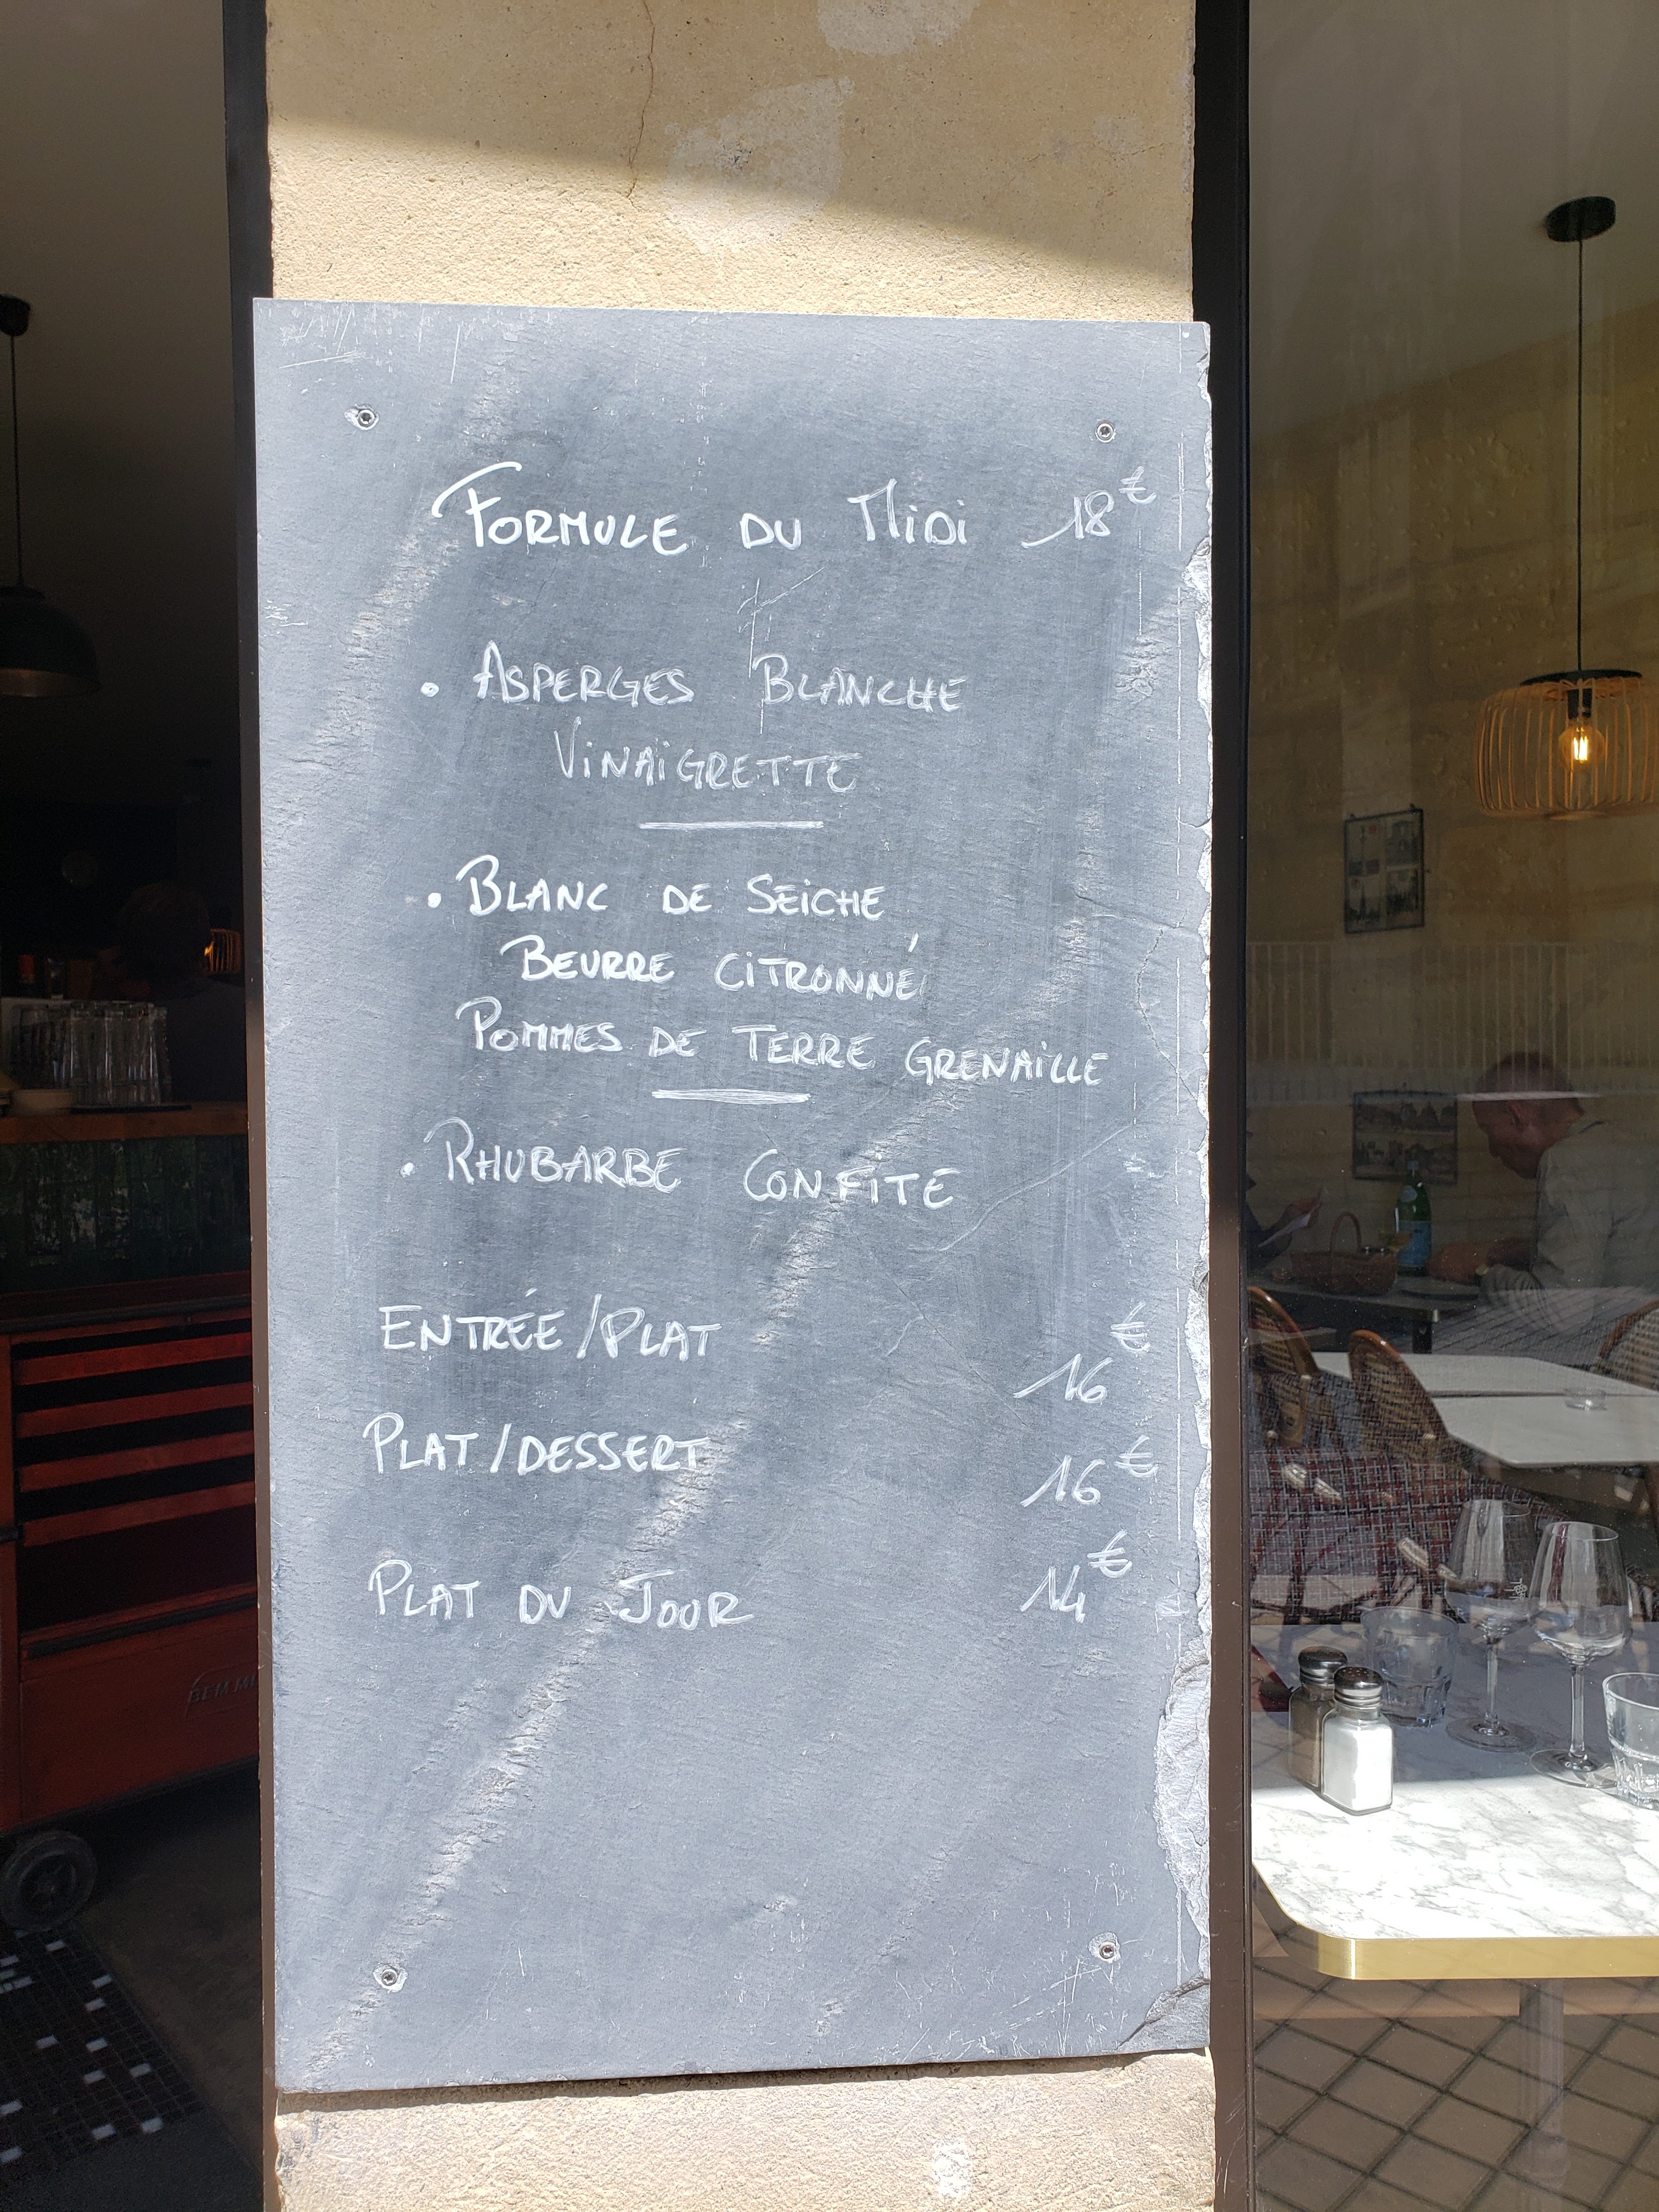 FORMULE DU MIDI 18€
• ASPERGES BLANCHE
VINAIGRETTE
• BLANC DE SEICHE
BEURRE CITRONNÉ
POMMES DE TERRE GRENAILLE
• RHUBARBE CONFITE
ENTRÉE/PLAT 16€
PLAT/DESSERT 16€
PLAT DU JOUR 14€